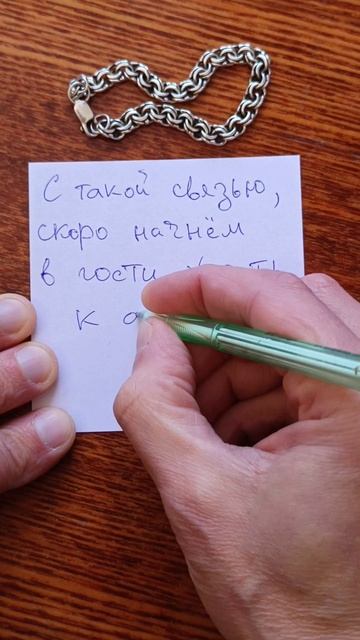 С такой связью,
скоро начнём
в гости
к